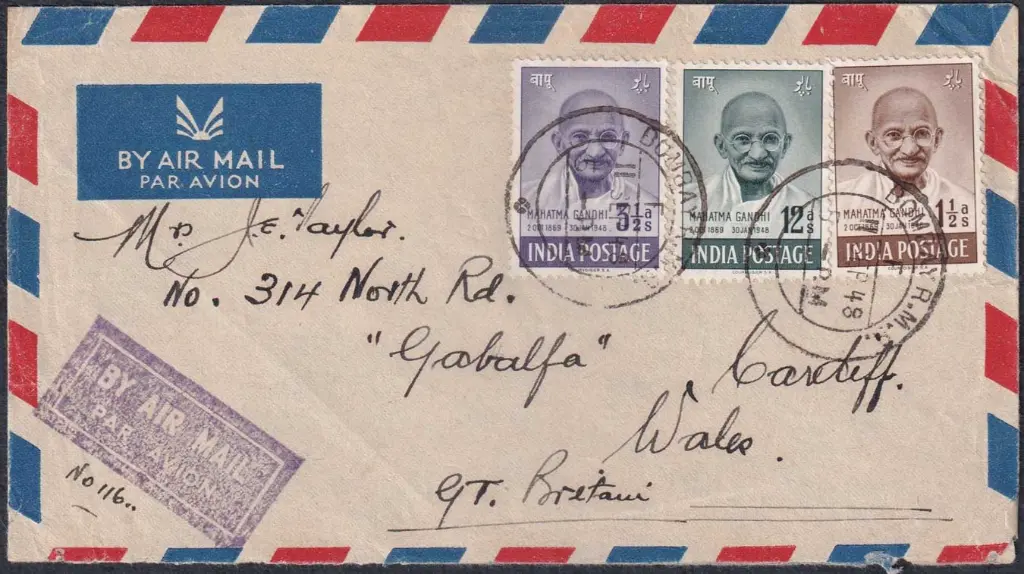 बापू باپو
MAHATMA GANDHI
2 OCT 1869 30 JAN 1948
3½ as
INDIA POSTAGE
बापू باپو
MAHATMA GANDHI
2 OCT 1869 30 JAN 1948
12 as
INDIA POSTAGE
बापू باپو
MAHATMA GANDHI
2 OCT 1869 30 JAN 1948
1½ as
INDIA POSTAGE
BOMBAY
BOMBAY R.M.S.
48
PM
BY AIR MAIL
PAR AVION
Mrs J.E. Taylor.
No. 314 North Rd.
"Gabalfa"
Cardiff.
Wales.
GT. Bretani
BY AIR MAIL
PAR AVION
No 116..